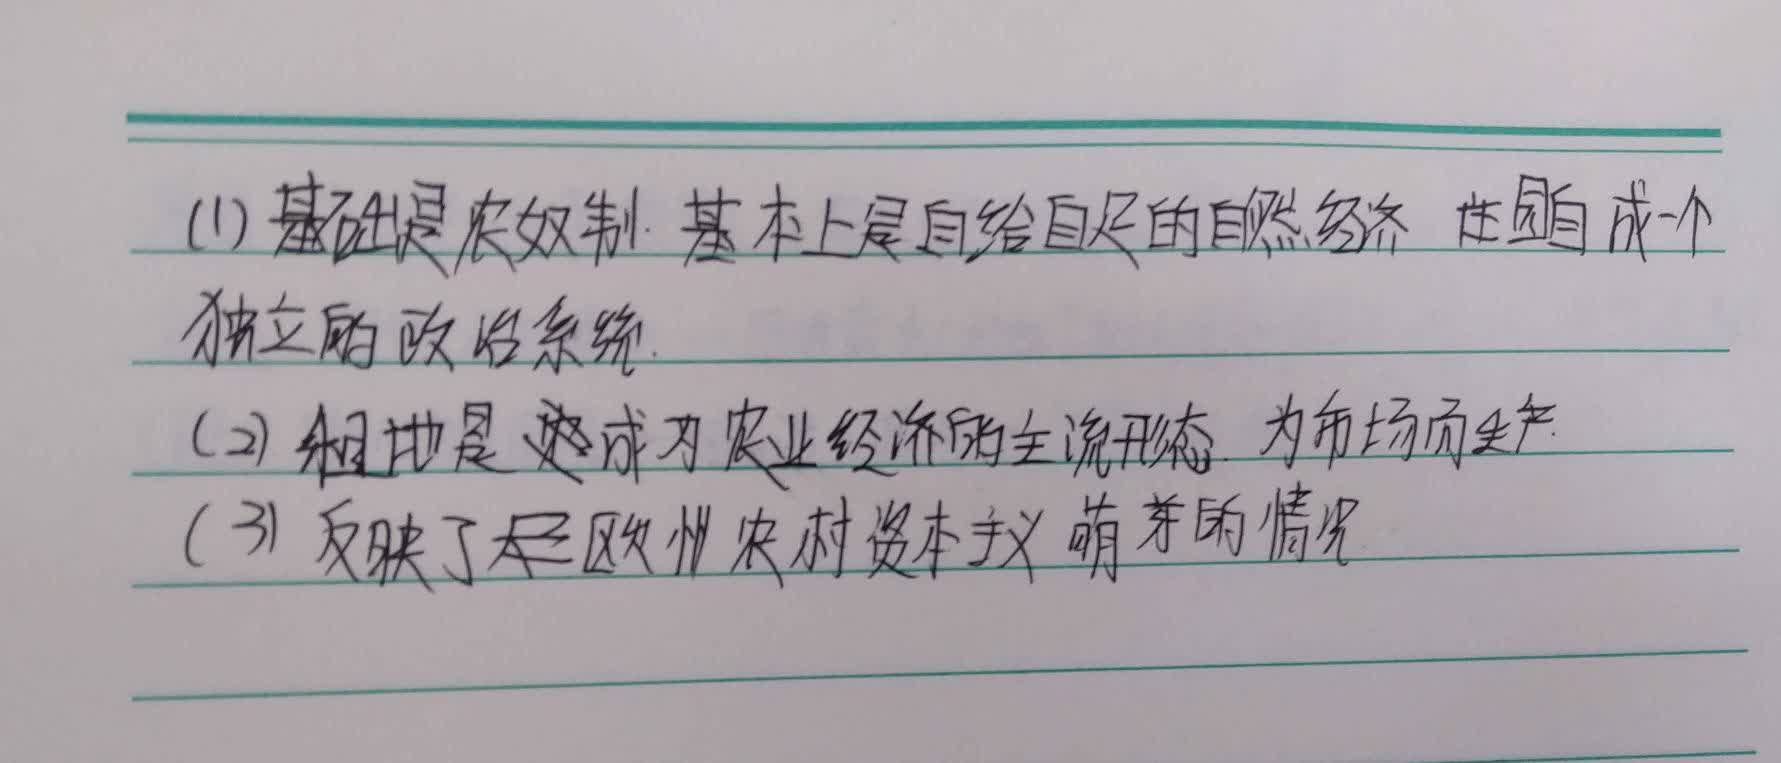 (1) 基础是农奴制. 基本上是自给自足的自然经济 庄园自成一个
独立的政治系统.
(2) 租地是 成为农业经济的主流形态. 为市场而生产.
(3) 反映了 欧州农村资本主义萌芽的情况